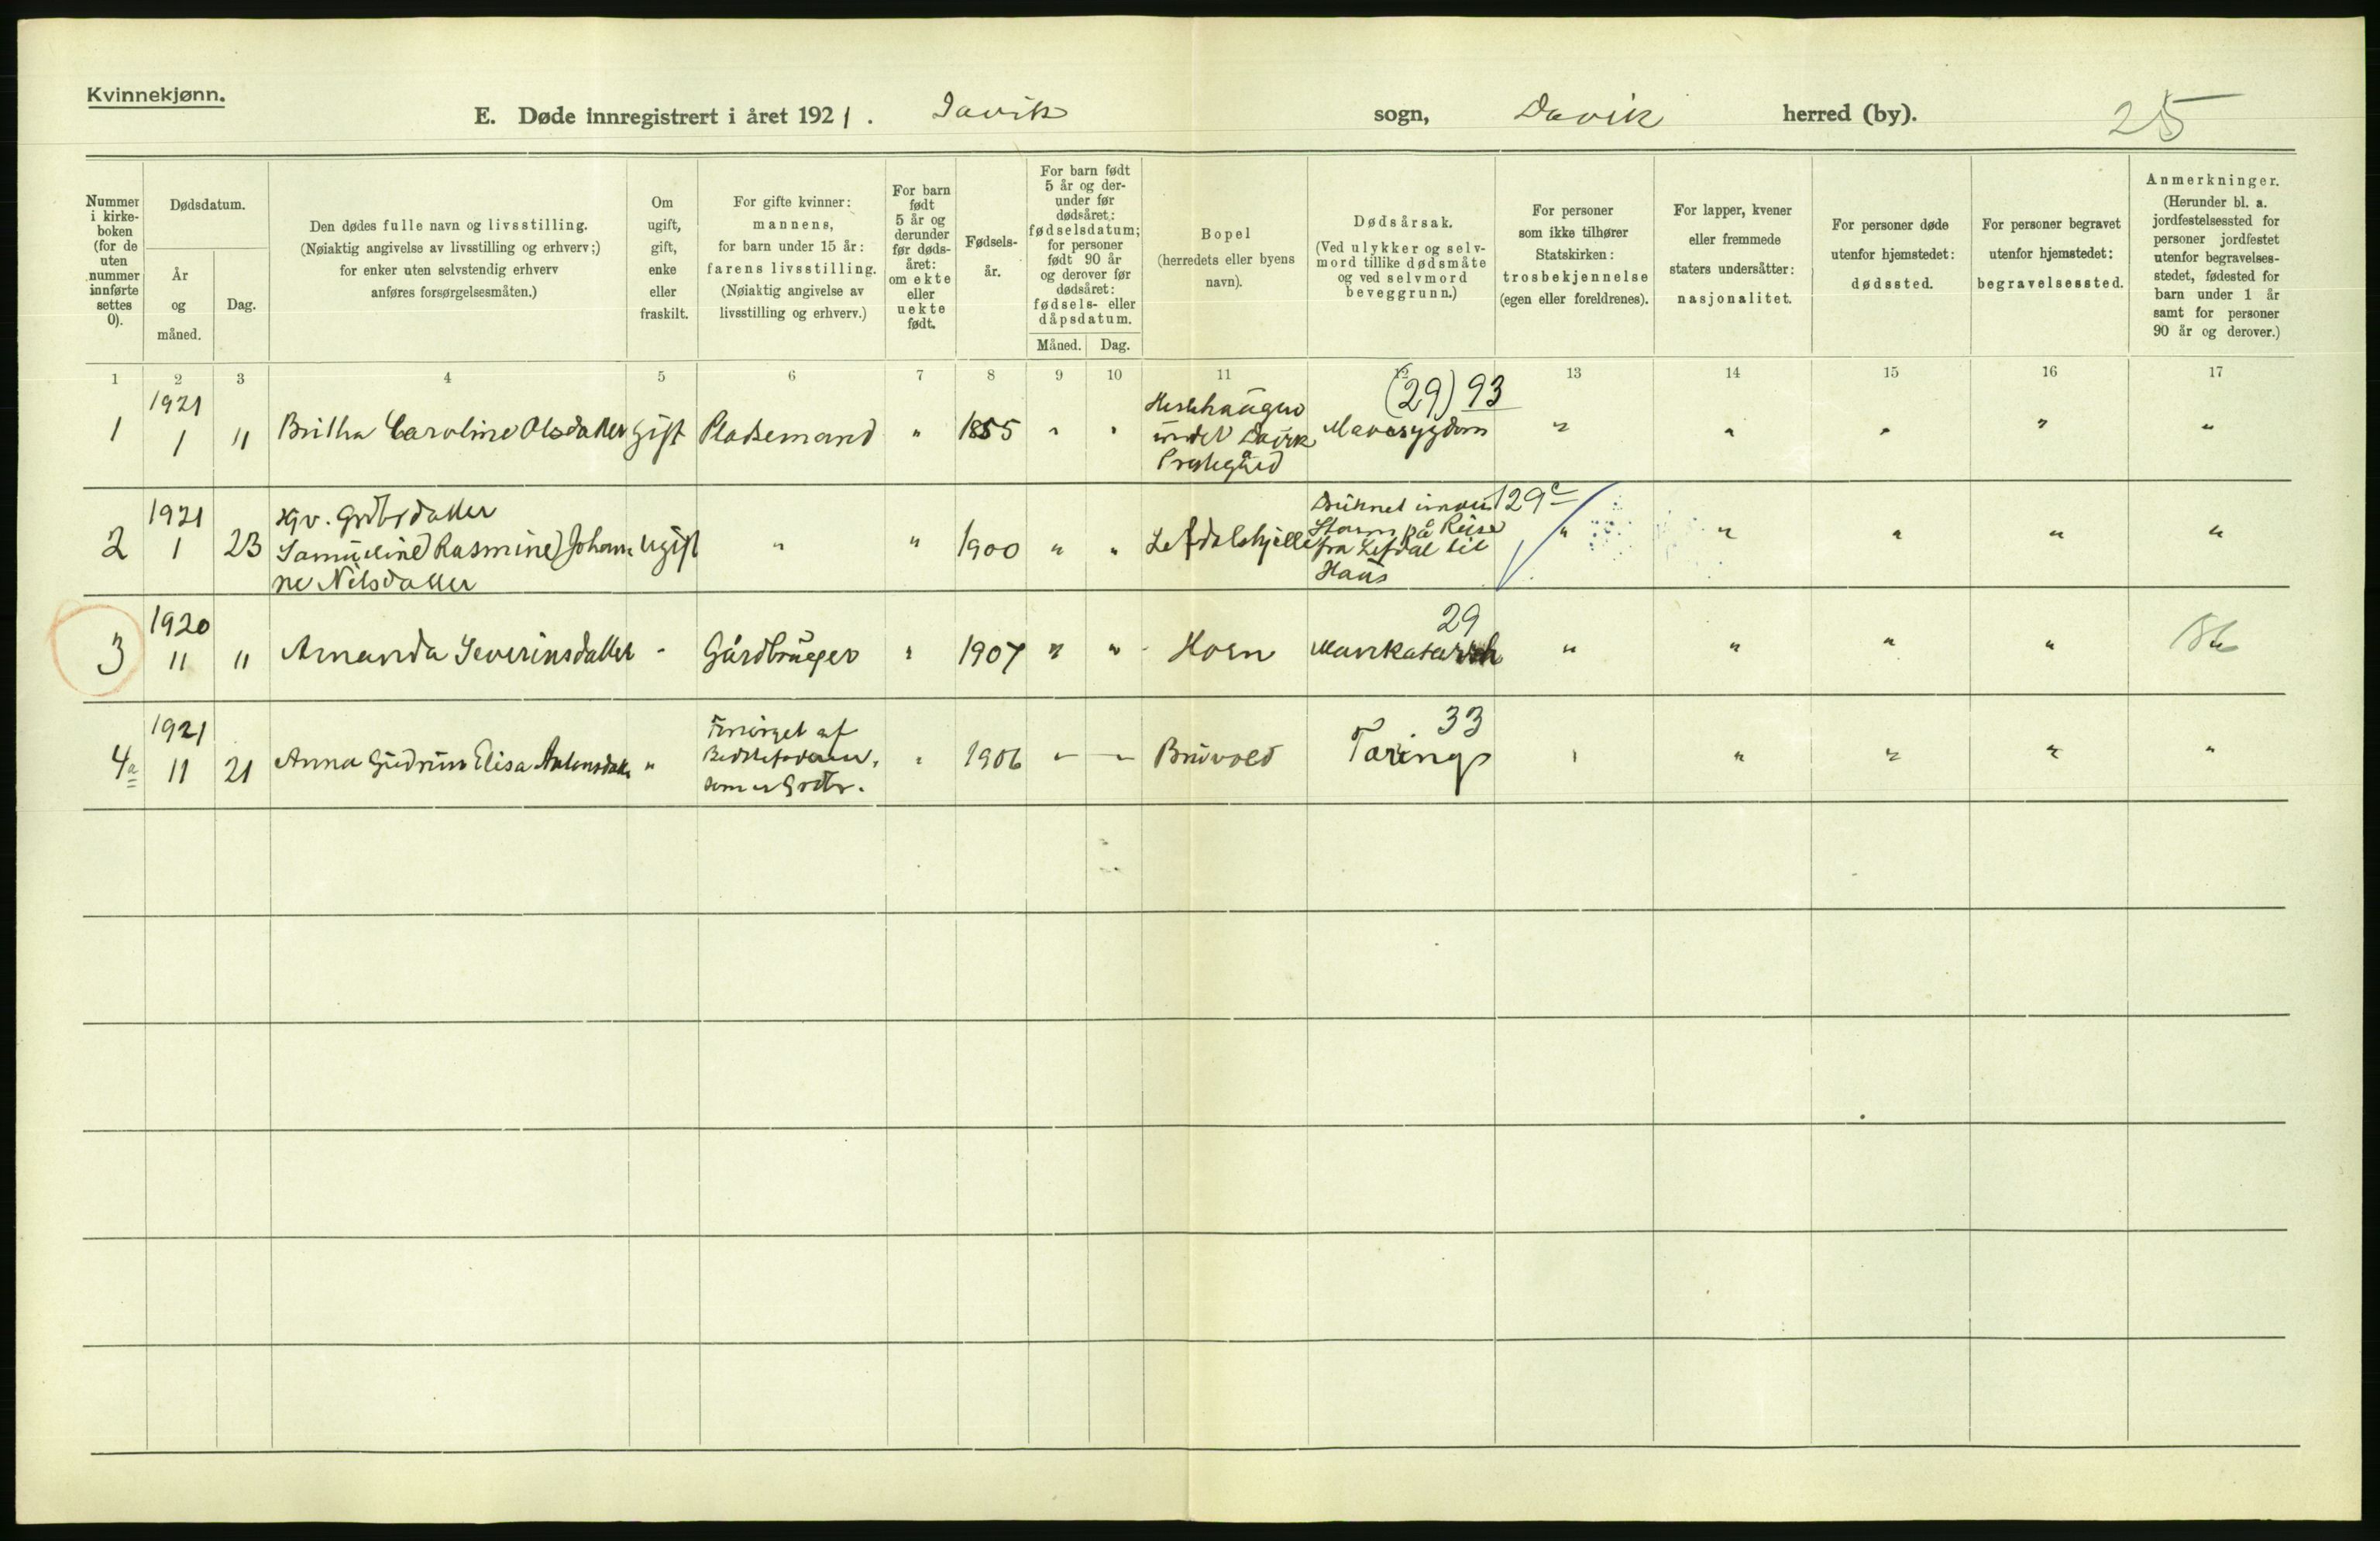 Kvinnekjønn.
E. Døde innregistrert i året 1921. Davik sogn, Davik herred (by). 25
Nummer i kirke-boken (for de uten nummer innførte settes 0).
Dødsdatum.
År og måned.
Dag.
Den dødes fulle navn og livsstilling.
(Nøiaktig angivelse av livsstilling og erhverv;)
for enker uten selvstendig erhverv
anføres forsørgelsesmåten.)
Om ugift, gift, enke eller fraskilt.
For gifte kvinner:
mannens,
for barn under 15 år:
farens livsstilling.
(Nøiaktig angivelse av
livsstilling og erhverv.)
For barn født 5 år og derunder før døds-året: om ekte eller uekte født.
Fødsels-år.
For barn født 5 år og der-under før dødsåret: fødselsdatum; for personer født 90 år og derover før dødsåret: fødsels- eller dåpsdatum.
Måned. Dag.
Bopel
(herredets eller byens
navn).
Dødsårsak.
(Ved ulykker og selv-
mord tillike dødsmåte
og ved selvmord
beveggrunn.)
For personer
som ikke tilhører
Statskirken:
trosbekjennelse
(egen eller foreldrenes).
For lapper, kvener
eller fremmede
staters undersåtter:
nasjonalitet.
For personer døde
utenfor hjemstedet:
dødssted.
For personer begravet
utenfor hjemstedet:
begravelsessted.
Anmerkninger.
(Herunder bl. a.
jordfestelsessted for
personer jordfestet
utenfor begravelses-
stedet, fødested for
barn under 1 år
samt for personer
90 år og derover.)
1 2 3 4 5 6 7 8 9 10 11 12 13 14 15 16 17
1 1921 1 11 Britha Caroline Olsdatter gift Pladsemand " 1855 " " under Davik Prestegård (29) 93 Mavesygdom " " " " "
2 1921 1 23 Grdbrdatter
Samueline Rasmine Johan-
ne Nilsdatter Ugift " " 1900 " " Lefdalshjelle Druknet
Storm på Reise
fra Lefdal til
Haus 129c " " " " "
3 1920 11 11 Amanda Severinsdatter - Gårdbruger " 1907 " " Horn 29 Mavekatarrh " " " "
4a 1921 11 21 Anna Gudrun Elisa Antonsdatter " Forsørget af
Bedstefaderen,
som er Grdbr. " 1906 - - Bruvold 33 Tærings " " " " "